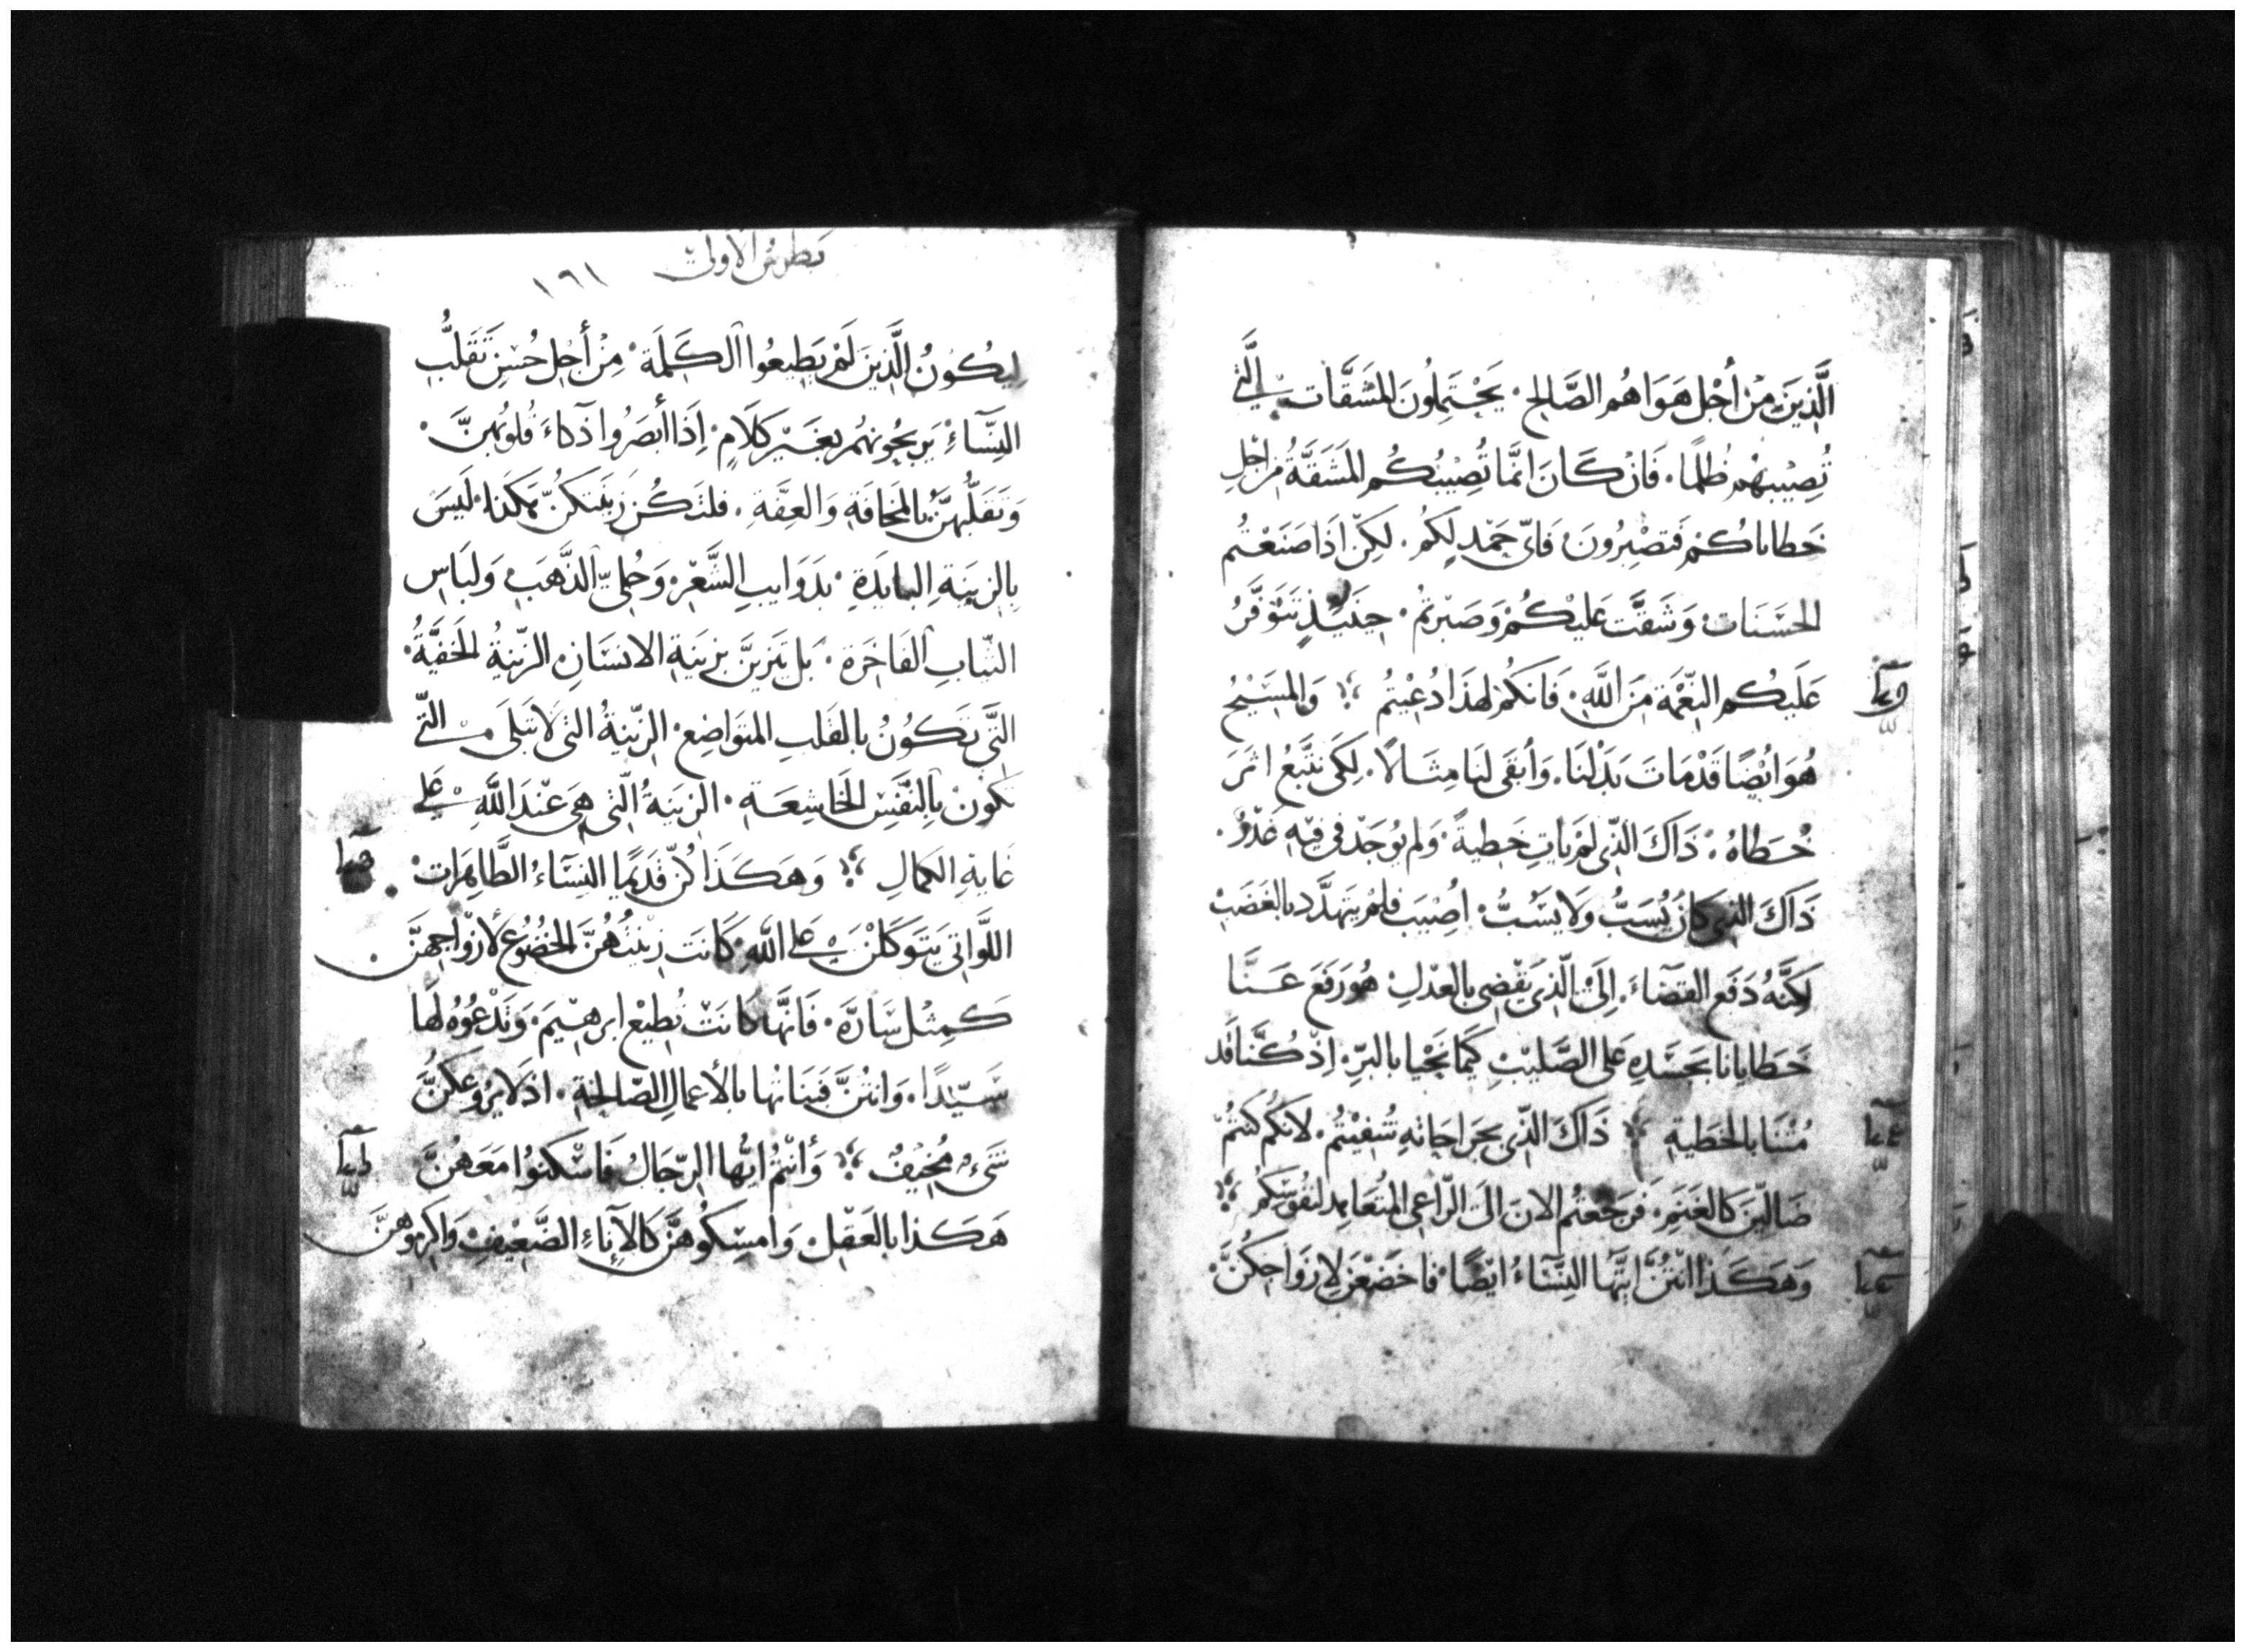 الَّذِينَ مِنْ أَجْلِ هَوَاهُم الصَّالِحِ · يَحْتَمِلُونَ المَشَقَّات الَّتِي
تُصِيْبهْم ظُلمًا · فَانْ كَانَ انمَّا تُصِيْبُكُم المَشَقَّةُ مِن اجْلِ
خَطاياكُم فَتصْبِرُونَ فَايّ حَمْدٍ لكُم · لكِنْ اذَا صَنَعْتُم
الحَسَنَات وَشَقَّت عَليْكُمْ وَصَبَرْتمُ · حِينَيِذٍ تَتَوَفَّرُ
عَلَيكُم النِّعْمَة مِنَ اللَّهِ · فَانكُم لهَذا دُعْيِتُم وَالمسَيْحُ
هُوَ ايْضًا قَدْ مَاتَ بَدَلْنَا · وَأبقَى لنَا مِثَالًا · لكَي نتَّبعُ اثرَ
خُطَاهُ · ذَاكَ الذِّي لمْ يَاتِ خَطِيةً · وَلم يُوجَدْ فِي فِيْهِ غَدْرٌ ·
ذَاكَ الذي كانَ يُسَبُّ وَلا يَسُبُّ · اصُيْبَ فلمْ يتهَدَّد بالغَضَبْ
لكِنَّهُ دَفَع القَضَاءَ · اِلىَ الّذِي يَقْضِي بالعَدْلِ · هُوَ رَفَعَ عَنَّا
خَطايانا بجَسَدِهِ عَلى الصَّليْبِ كَيمَا نحْيا بالبرِّ · اِذْ كُنَّا قَد
مُتْنَا بالخَطيةِ ذَاكَ الذِّي بجَرَاحَاتهِ شُفيْتُم · لانكُم كنتُمْ
ضَالّينَ كَالغَنَم · فَرَجَعْتُم الانَ الىَ الرّاعِي المتُعَاهِد لنفُوسِكُم
وَهَكَذا انْتُنَّ ايَّتهَا النِسَّاءُ ايْضًا · فاخضَعْنَ لازوَاجِكُنَّ ·
بطرس الاولى
١٦١
ليكُونُ الَّذِينَ لَمْ يَطِيعُوا الكَلِمَة · مِنْ أَجْلِ حُسْنِ تَقَلُّبِ
النِسَّاءِ يَربحُونهُم بغَيْر كَلَامٍ · اِذَا أبْصَرُوا ذَكاءَ قُلوُبهِنَّ ·
وَتَقَلُّبهِنَّ بالمَخافَةِ وَالعِفَّةِ · فلتَكُن زينَتكنَّ هَكَذا · لَيسَ
بِالزِينَةِ البايدَةِ · بدَوَايبِ الشَّعْرِ · وَحُلِيّ الذَّهَبِ وَلبَاسِ
الثيّابِ الفَاخِرَة · بَل تتزَينَّ بزينَةِ الانسَانِ الزّينةُ الخَفيَّةُ ·
التَّي تَكُونُ بالقَلبِ المتَوَاضِع · الزّينةُ التي لاتَبلَى التَّي
تكون بِالنَفْسِ الخَاشِعَةِ · الزينَةُ الَّتي هِيَ عِنْدَ اللَّهِ عَلى
غَايةِ الكَمالِ وَهَكَذَا كُنّ قَديمًا النِسَّاءُ الطَّاهِرَات ·
اللَّوَاتي يَتوَكَلْنَ عَلي اللَّهِ كَانَت زيْنتُهُنَّ الخضُوُع لأزْوَاجِهنَّ ·
كَمِثْل سَارَّة · فَانهَّا كَانَتْ تُطِيْعِ ابرهِيْمَ · وَتَدْعُوْهُ لهَا
سَيّدًا · وَانتُنَّ فَبَنَاتهَا بالأعمالِ الصّالحةِ · اذ لا يرُوعكنَّ
شَيءٌ مُخيْفٌ وَأنتُمْ ايُّها الرّجَالُ فَاسْكنوُا مَعَهُنَّ
هَكَذا بالعَقْلِ · وَامسِكُوهُنَّ كَالإنَاءِ الضَّعِيْفِ وَاكرِموُهنَّ